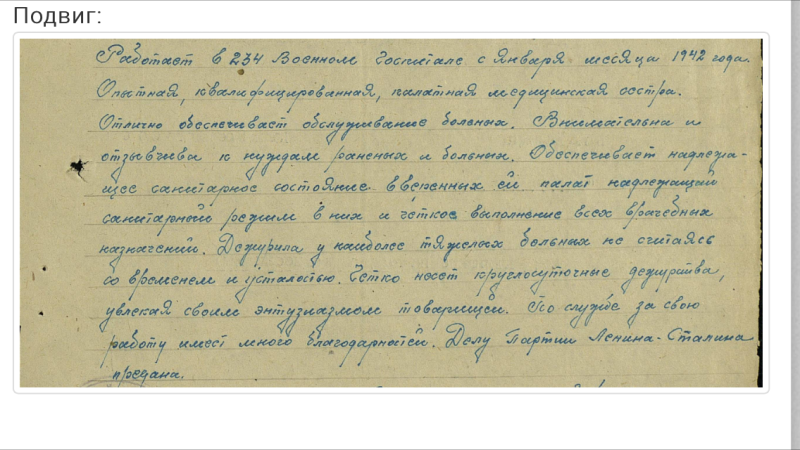 Подвиг:
Работает в 234 Военном Госпитале с Января месяца 1942 года.
Опытная, квалифицированная, палатная медицинская сестра.
Отлично обеспечивает обслуживание больных. Внимательна и
отзывчива к нуждам раненых и больных. Обеспечивает надлежа-
щее санитарное состояние вверенных ей палат надлежащий
санитарный режим в них и чёткое выполнение всех врачебных
назначений. Дежурила у наиболее тяжелых больных не считаясь
со временем и усталостью. Четко несет круглосуточные дежурства,
увлекая своим энтузиазмом товарищей. По службе за свою
работу имеет много благодарностей. Делу Партии Ленина-Сталина
предана.